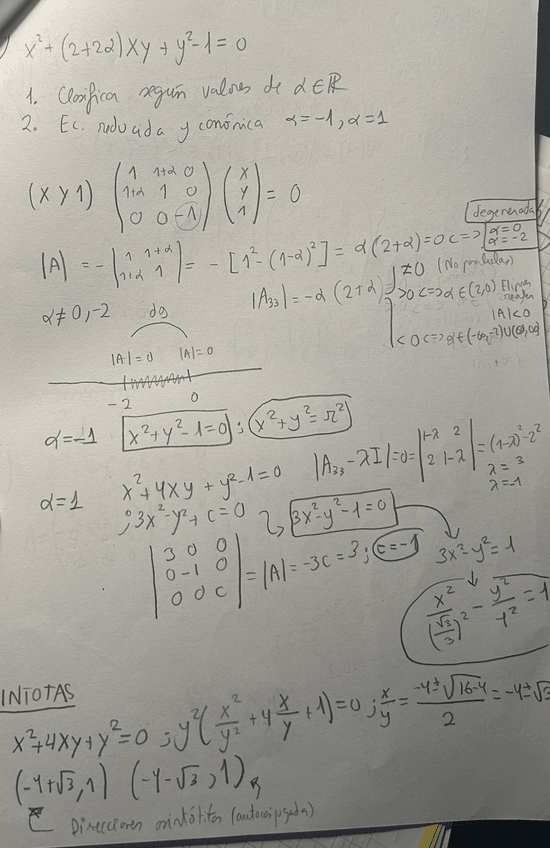 x² + (2+2α)xy + y² - 1 = 0
1. Clasifica según valores de α ∈ ℝ
2. Ec. reducida y canónica α = -1, α = 1
(x y 1) (1 1+α 0; 1+α 1 0; 0 0 -1) (x; y; 1) = 0
degenerada
|A| = - |1 1+α; 1+α 1| = - [1² - (1-α)²] = α(2+α) = 0 <=> α = 0 α = -2
α ≠ 0, -2
|A₃₃| = -α(2+α)
≠ 0 (No parábolas)
> 0 <=> α ∈ (2,0) Elipse
|A| < 0
< 0 <=> α ∈ (-∞,-2)∪(0,∞)
dg
|A| = 0 |A| = 0
-2 0
α = -1 x² + y² - 1 = 0 ; x² + y² = r²
α = 1 x² + 4xy + y² - 1 = 0 |A₃₃ - λI| = 0 = |1-λ 2; 2 1-λ| = (1-λ)² - 2²
λ = 3
λ = -1
; 3x² - y² + c = 0 3x² - y² - 1 = 0
|3 0 0; 0 -1 0; 0 0 c| = |A| = -3c = 3 ; c = -1
3x² - y² = 1
x²/(√3/3)² - y²/1² = 1
INTOTAS
x² + 4xy + y² = 0 ; y²(x²/y² + 4 x/y + 1) = 0 ; x/y = (-4 ± √16-4)/2 = -4 ± √3
(-4+√3, 1) (-4-√3, 1)
Direcciones asintóticas (autoconjugada)